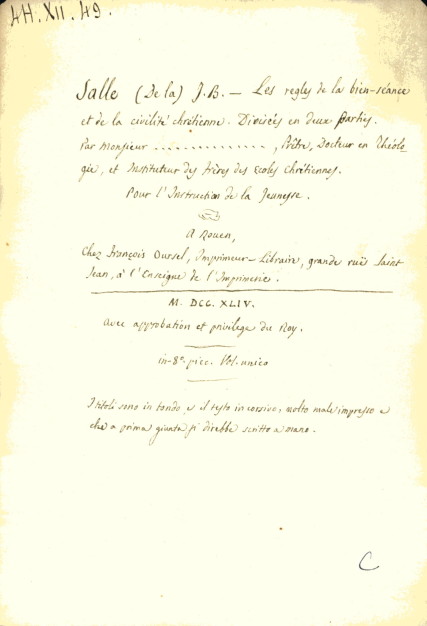 4H.XII.49.
Salle (De la) J.B. — Les regles de la bien-séance
et de la civilité chrétienne. Divisées en deux parties.
Par Monsieur .............., Prêtre, Docteur en Théolo
gie, et Instituteur des frères des Ecoles chrétiennes.
Pour l'Instruction de la Jeunesse.
A Rouen,
Chez François Oursel, Imprimeur-Libraire, grande ruë Saint
Jean, à l'Enseigne de l'Imprimerie.
M. DCC. XLIV.
Avec approbation et privilege du Roy.
in-8º picc. Vol. unico
I titoli sono in tondo, e il testo in corsivo, molto male impresso e
che a prima giunta si direbbe scritto a mano.
C